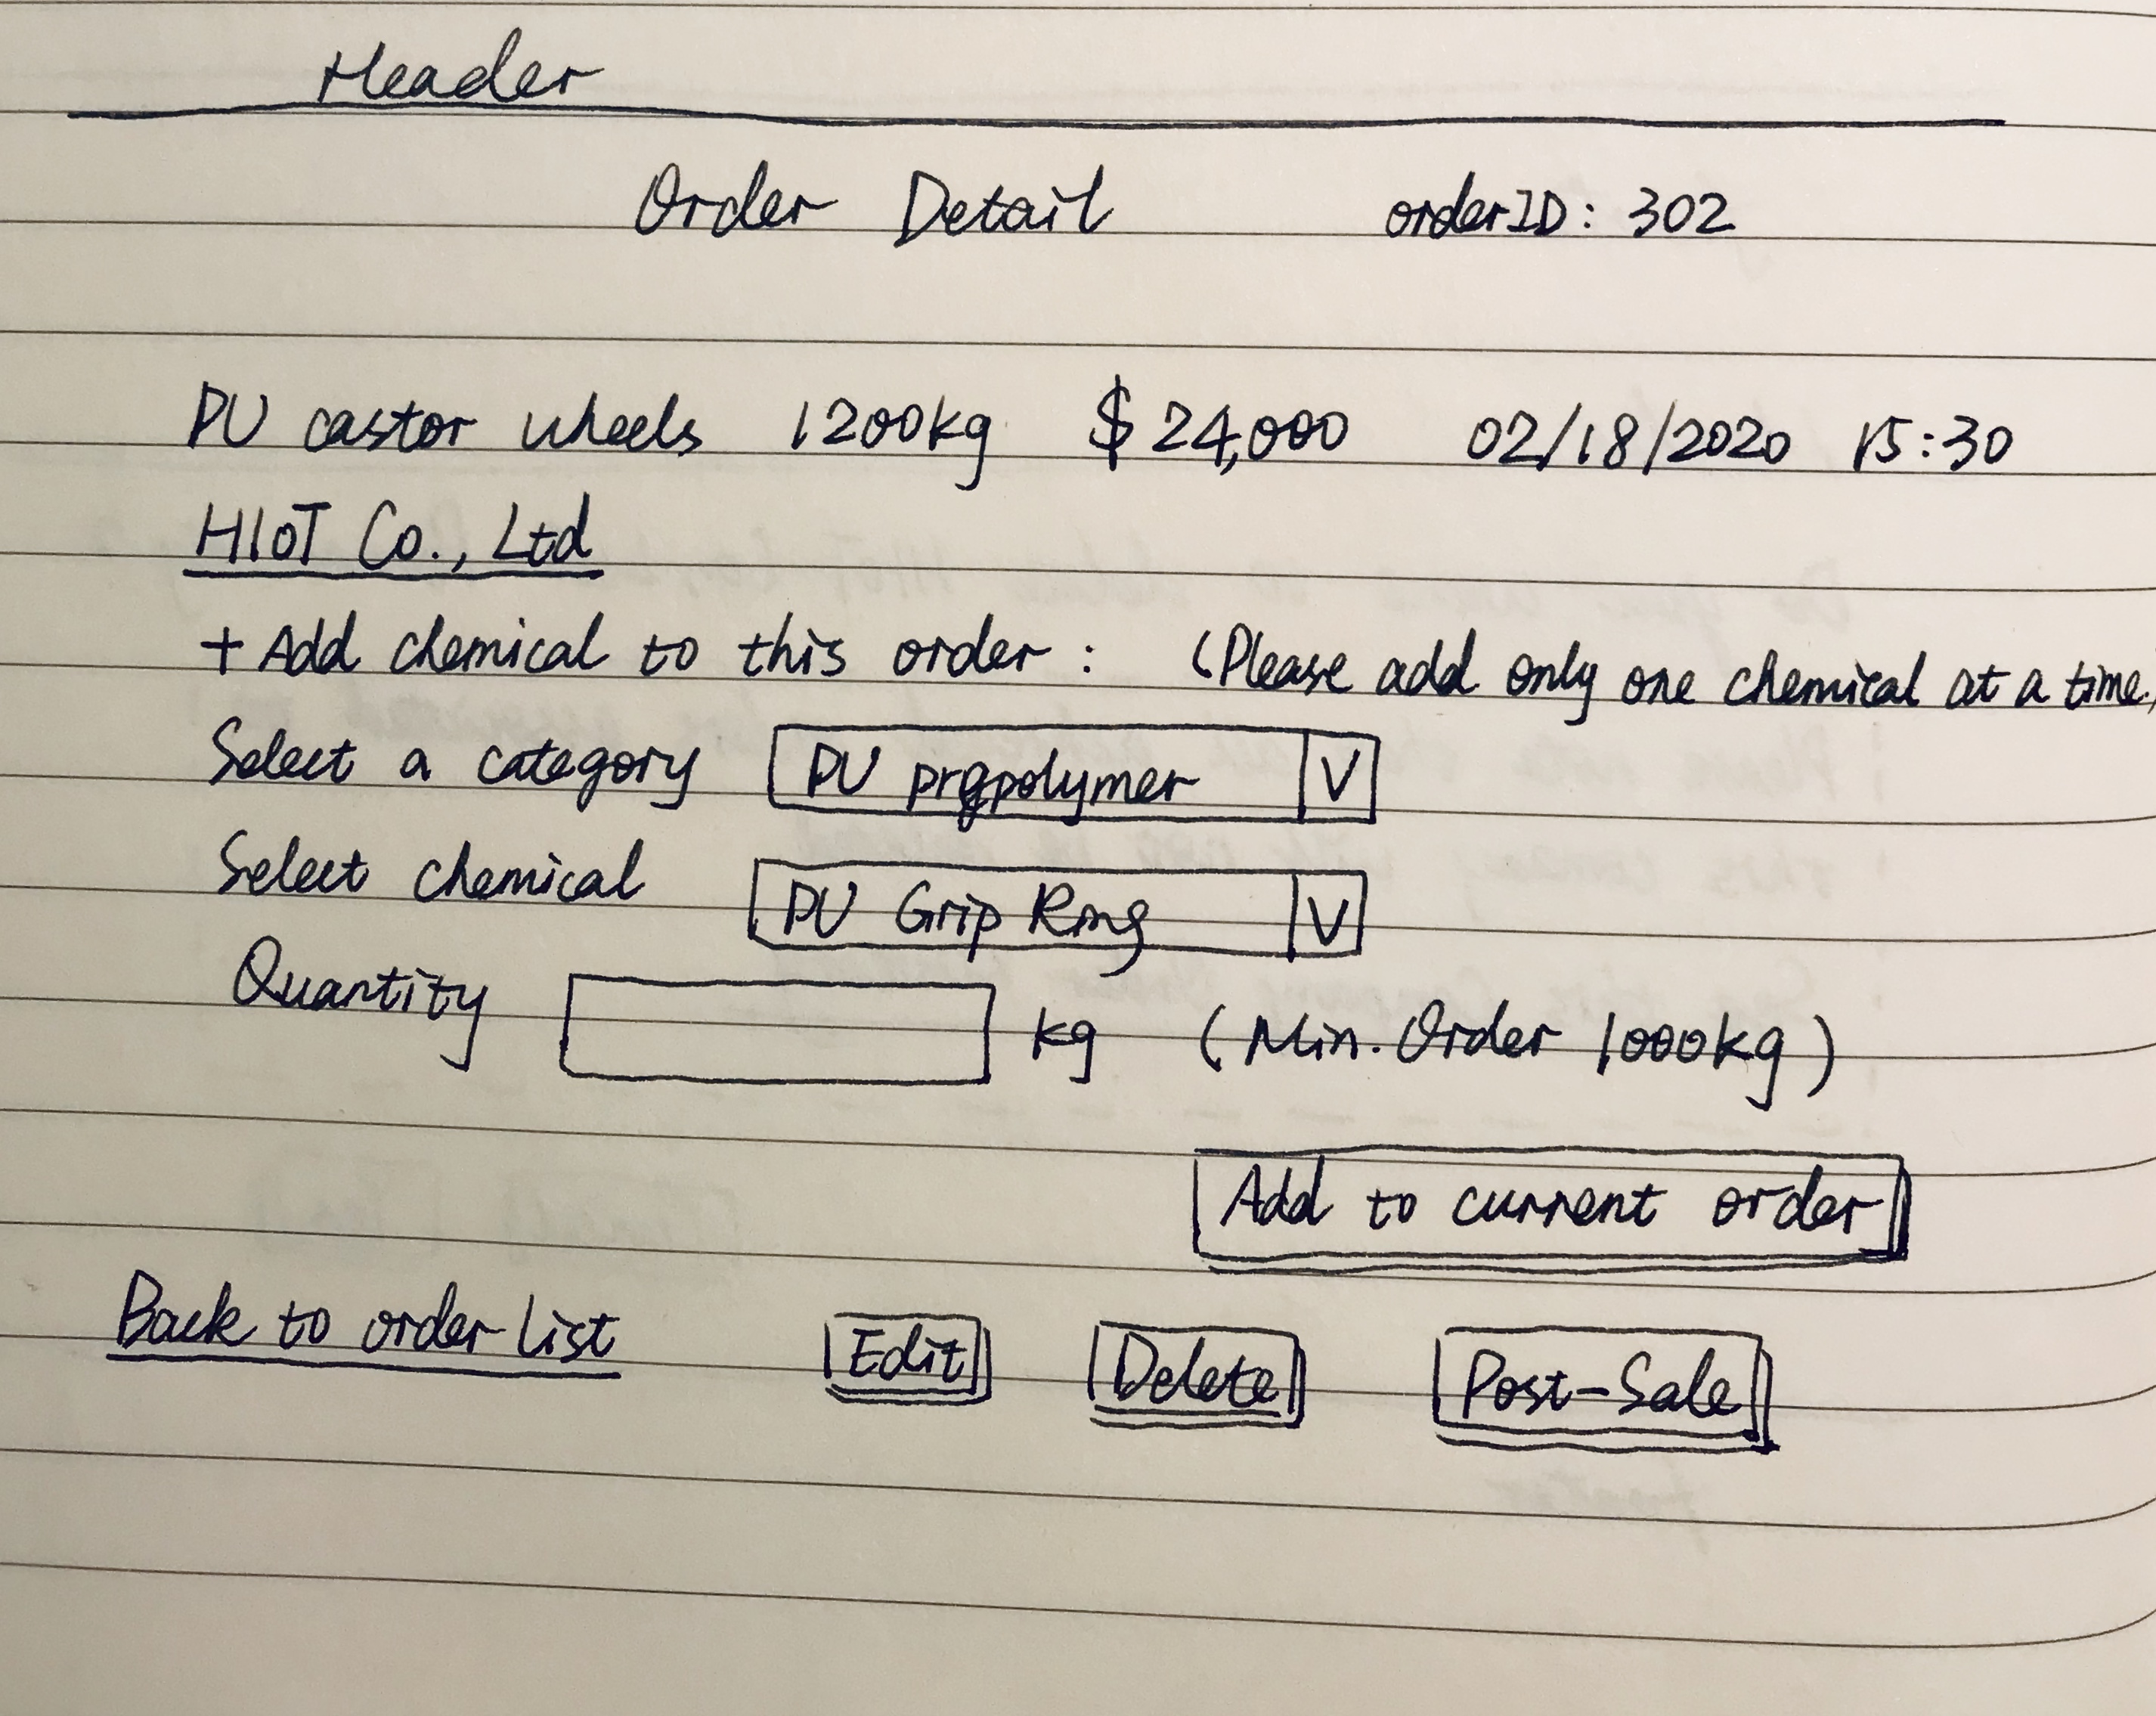 Header
Order Detail orderID: 302
PU castor wheels 1200kg $24,000 02/18/2020 15:30
HIoT Co., Ltd
+ Add chemical to this order: (Please add only one chemical at a time.)
Select a category PU prepolymer V
Select chemical PU Grip Ring V
Quantity kg (Min. Order 1000kg)
Add to current order
Back to order list Edit Delete Post-Sale